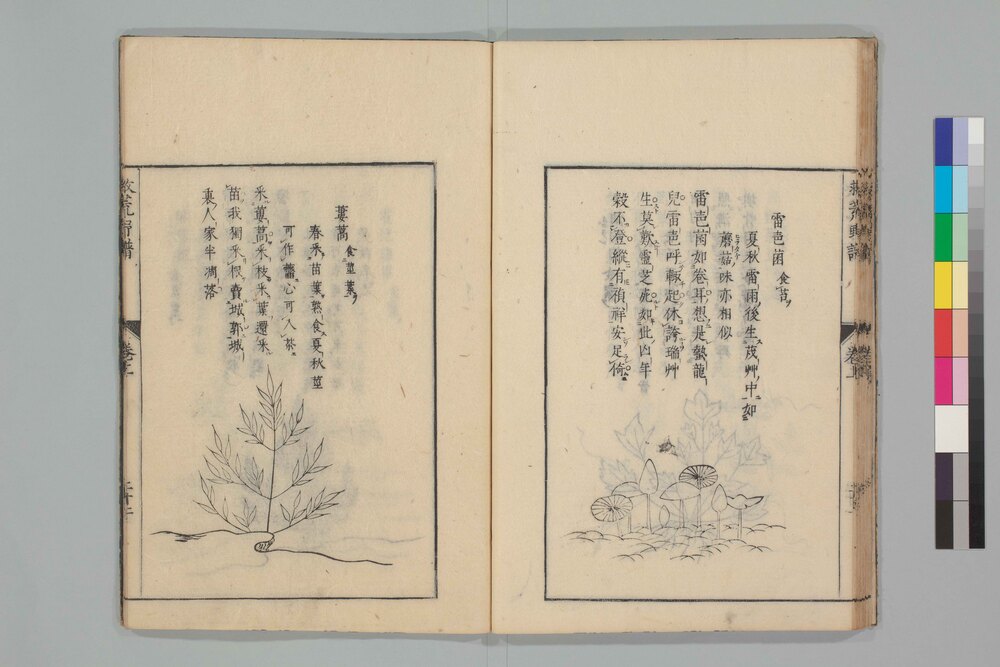 雷菌 食苔
夏秋雷雨後生茂艸中如
蘑菇味亦相似
雷菌如卷耳想是蟄龍
兒雷呼輒起休誇瑞艸
生莫歎靈芝死如此凶年
穀不登縱有禎祥安足倚
蔞蒿 食莖葉
春采苗葉熟食夏秋莖
可作虀心可入茶
采蔞蒿采枝采葉還采
苗我獨采根賣城郭城
裏人家半凋落
救荒野譜
卷上